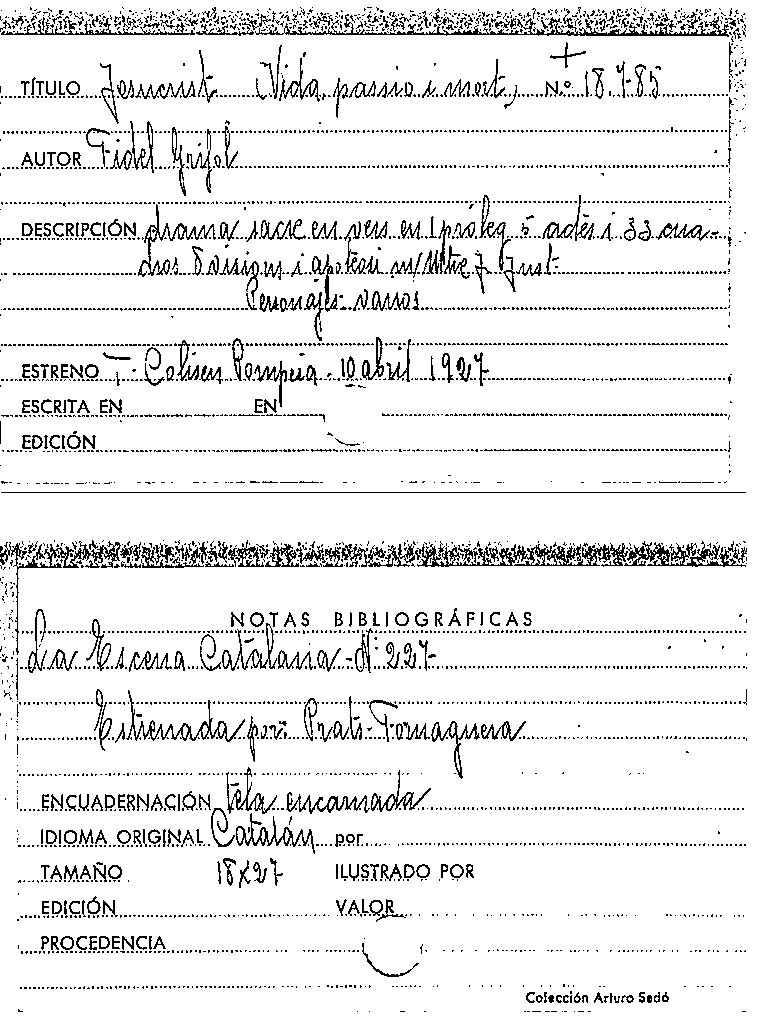 TÍTULO Jesucrist (Vida, passio i mort) N.º 18.785
AUTOR Fidel Grifol
DESCRIPCIÓN drama sacre en vers en 1 próleg 5 actes i 33 cua-
dros 8 visions i apoteosi m/ Mtre J. Just-
Personajes- varios
ESTRENO T. Coliseu Pompeia - 10 abril 1927
ESCRITA EN EN
EDICIÓN
NOTAS BIBLIOGRÁFICAS
La Escena Catalana - Nº 227-
Estrenada por: Prats-Fornaguera
ENCUADERNACIÓN tela encarnada
IDIOMA ORIGINAL Catalán por
TAMAÑO 18x27 ILUSTRADO POR
EDICIÓN VALOR
PROCEDENCIA
Colección Arturo Sedó